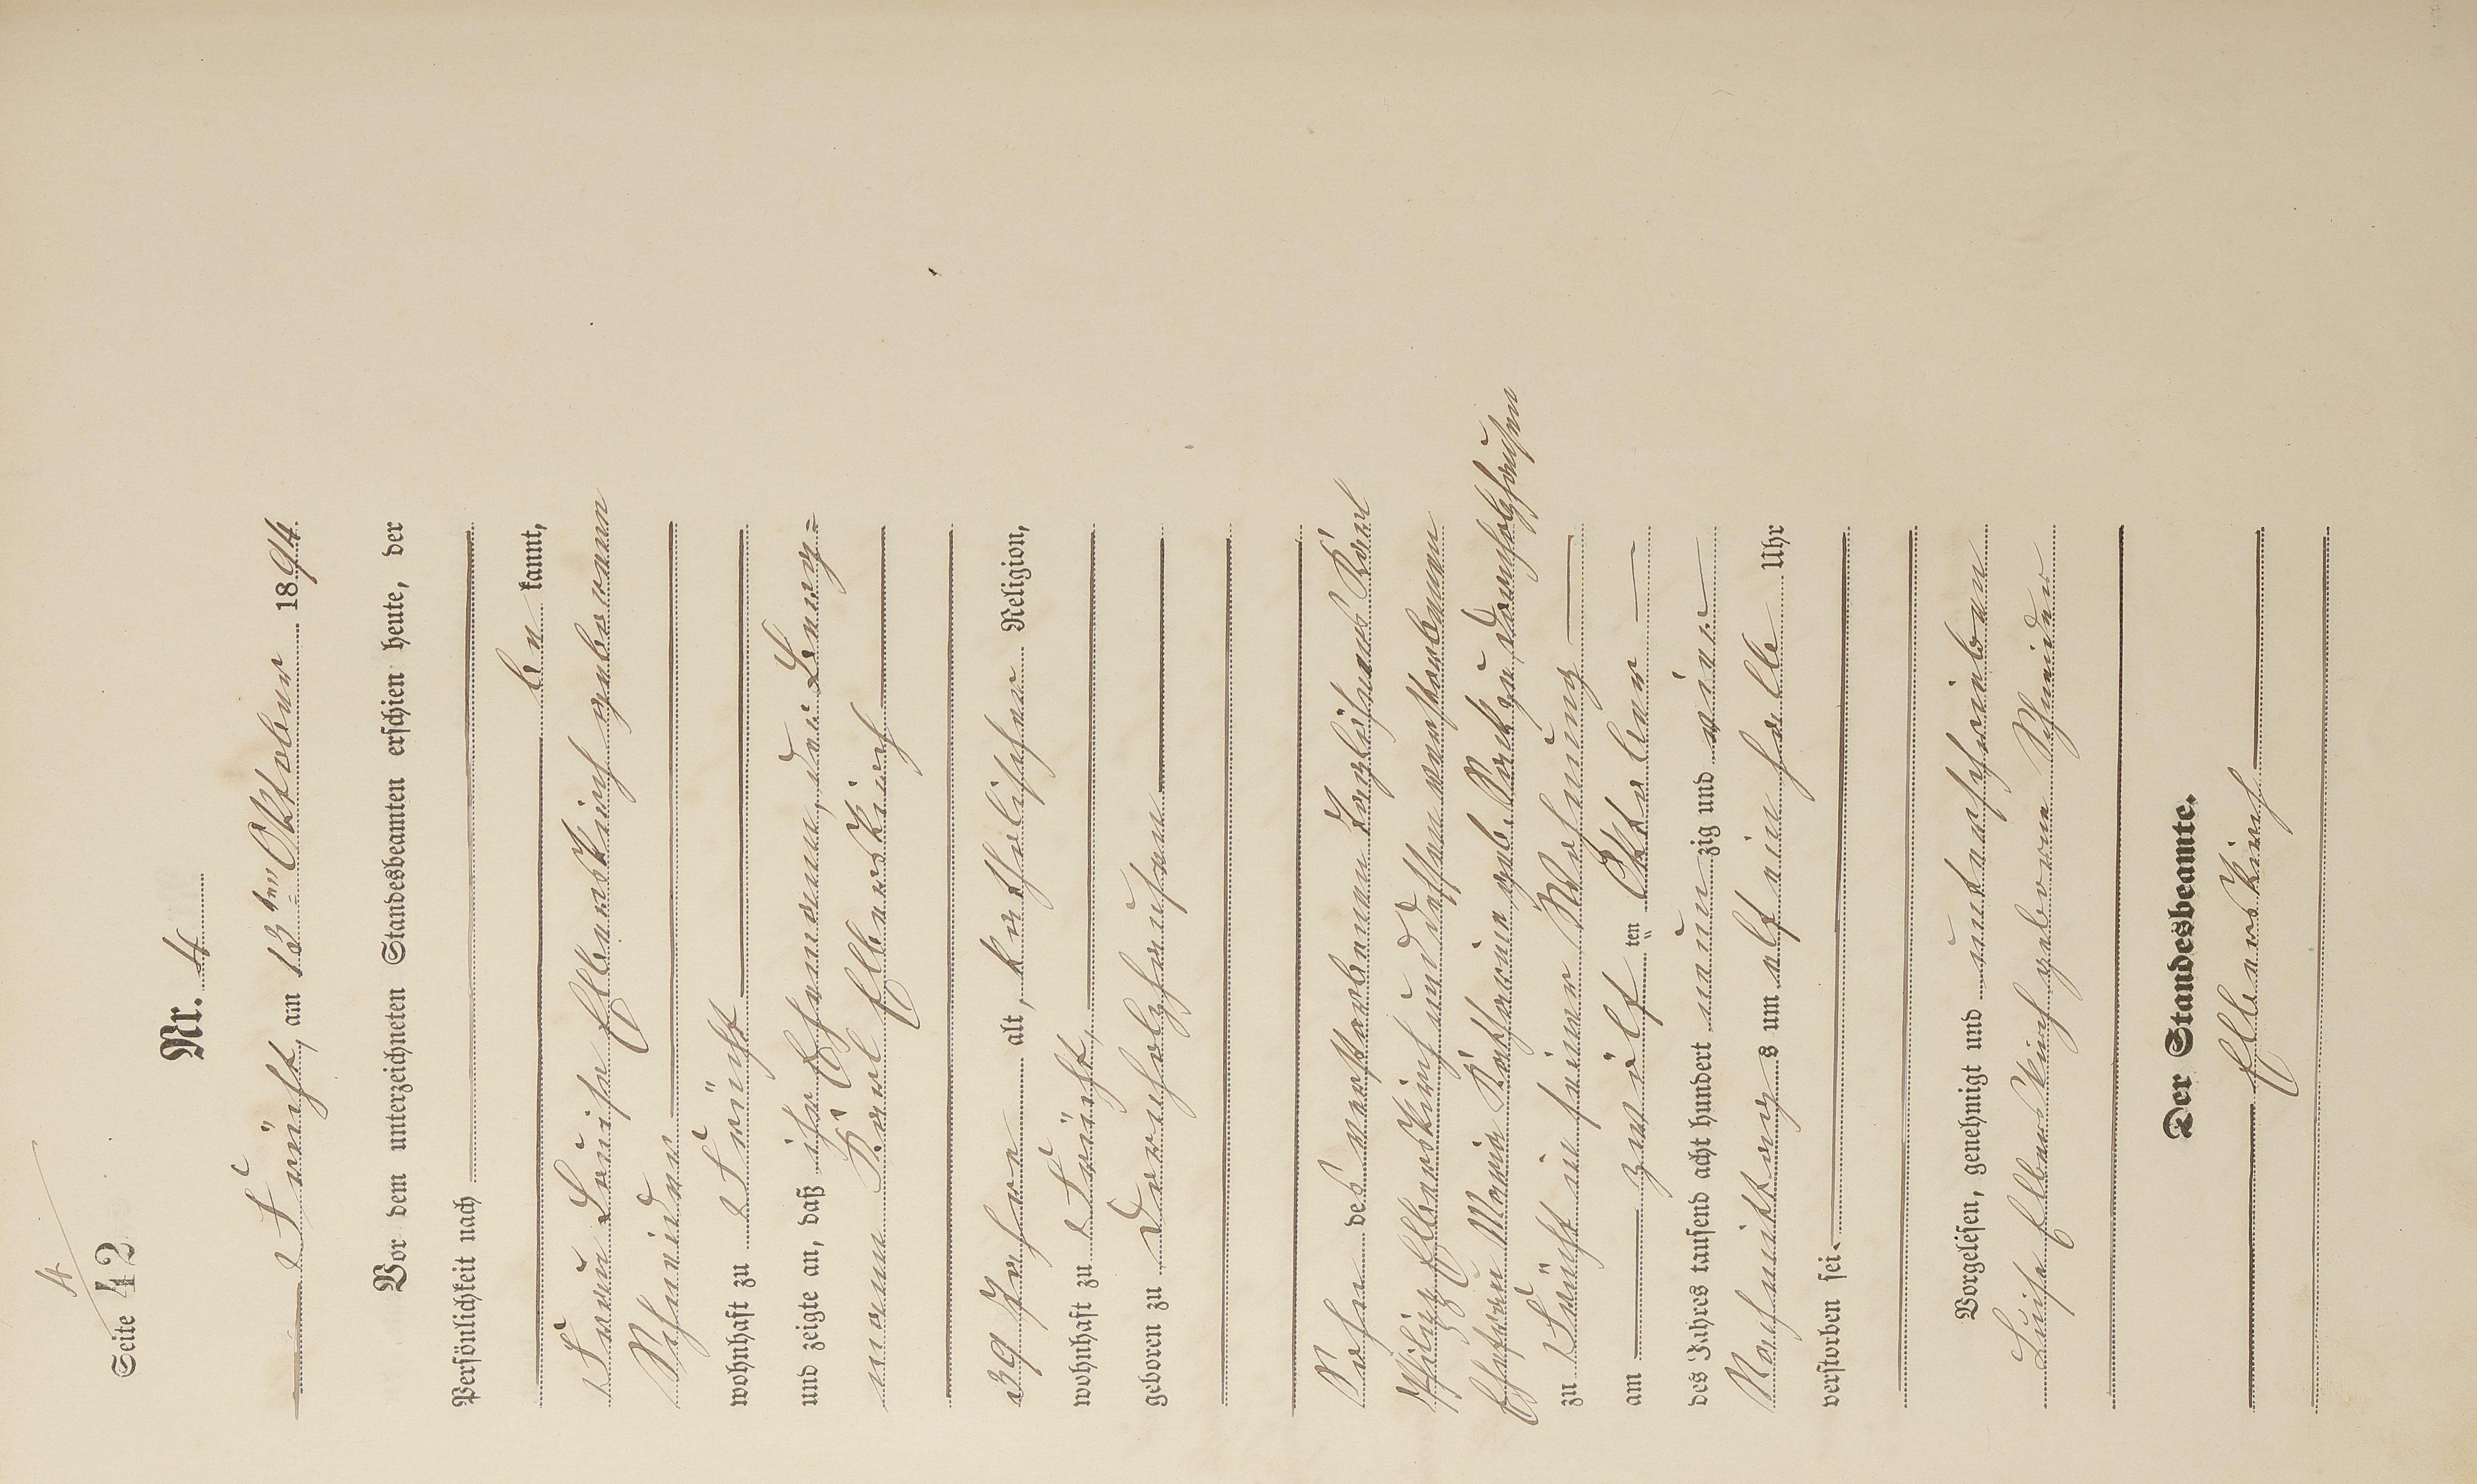 4
Seite 42
Nr. 4
Frücht, am 13ten Oktober 1894.
Vor dem unterzeichneten Standesbeamten erschien heute, der
Persönlichkeit nach
be kannt,
Frau Louise Elberskirch geborenen
Schneider
wohnhaft zu Frücht
und zeigte an, daß ihr Ehemann, der Berg=
mann Karl Elberskirch
39 Jahre alt, katholischer Religion,
wohnhaft zu Frücht,
geboren zu Dernholzhausen
Sohn des verstorbenen Karl
Philipp Elberskirch und dessen verstorbenen
Ehefrau Maria Katharina geb. zu Dornholzhausen
zu Frücht in seiner Wohnung
am zwölf ten Oktober
des Jahres tausend acht hundert neun zig und vier
Nachmittag s um elf ein halb Uhr
verstorben sei.
Vorgelesen, genehmigt und unterschrieben
Luise Elberskirch geborene Schneider
Der Standesbeamte.
Elberskirch